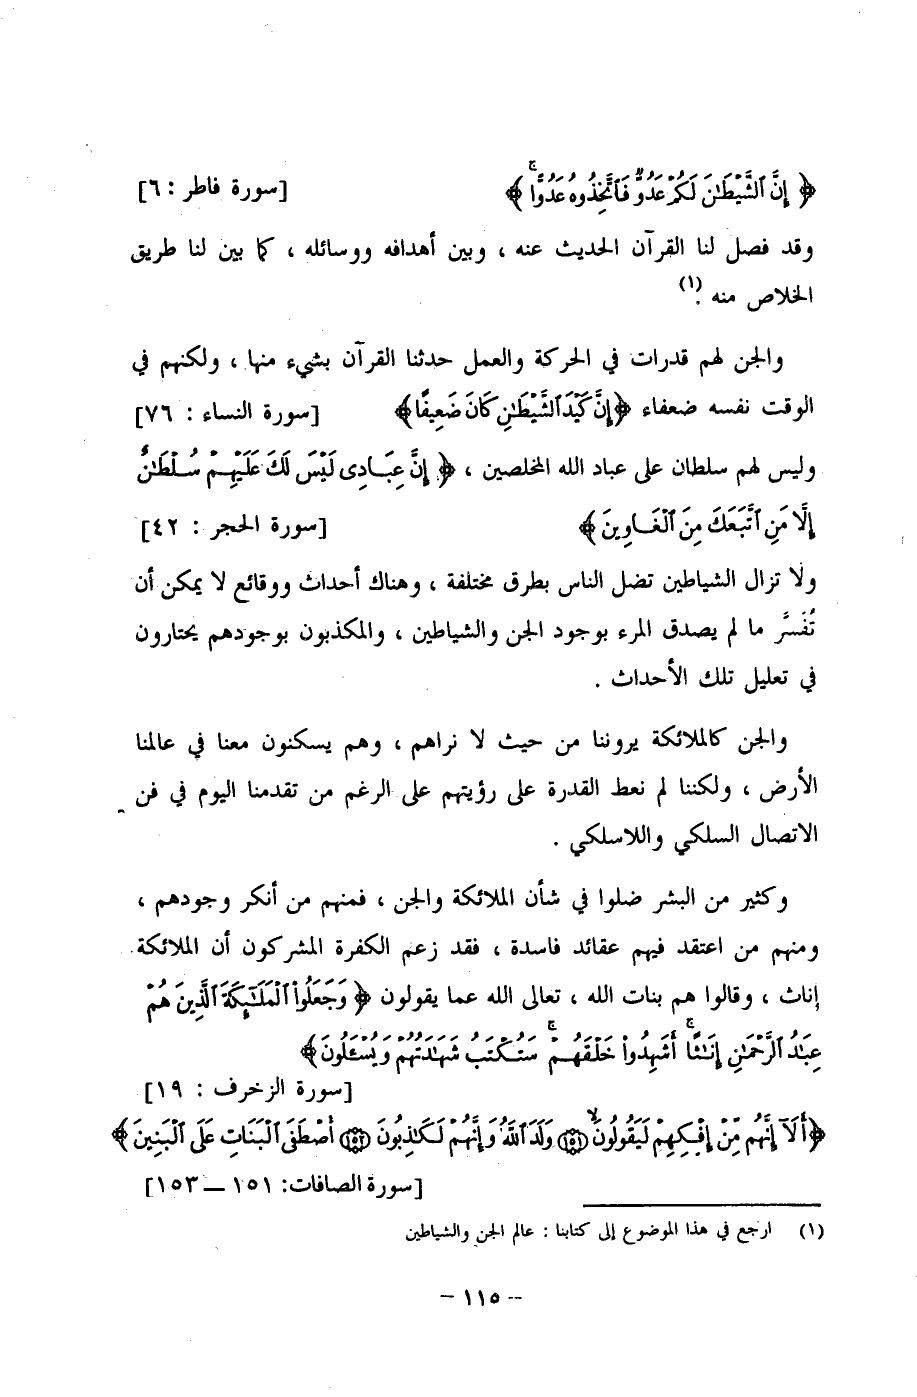 ﴿ إِنَّ ٱلشَّيْطَٰنَ لَكُمْ عَدُوٌّ فَٱتَّخِذُوهُ عَدُوًّا ۚ ﴾ [سورة فاطر : ٦]
وقد فصل لنا القرآن الحديث عنه ، وبين أهدافه ووسائله ، كما بين لنا طريق
الخلاص منه .(١)
والجن لهم قدرات في الحركة والعمل حدثنا القرآن بشيء منها ، ولكنهم في
الوقت نفسه ضعفاء ﴿إِنَّ كَيْدَ ٱلشَّيْطَٰنِ كَانَ ضَعِيفًا﴾ [سورة النساء : ٧٦]
وليس لهم سلطان على عباد الله المخلصين ، ﴿ إِنَّ عِبَادِى لَيْسَ لَكَ عَلَيْهِمْ سُلْطَٰنٌ
إِلَّا مَنِ ٱتَّبَعَكَ مِنَ ٱلْغَاوِينَ ﴾ [سورة الحجر : ٤٢]
ولا تزال الشياطين تضل الناس بطرق مختلفة ، وهناك أحداث ووقائع لا يمكن أن
تُفَسَّر ما لم يصدق المرء بوجود الجن والشياطين ، والمكذبون بوجودهم يحتارون
في تعليل تلك الأحداث .
والجن كالملائكة يروننا من حيث لا نراهم ، وهم يسكنون معنا في عالمنا
الأرض ، ولكننا لم نعط القدرة على رؤيتهم على الرغم من تقدمنا اليوم في فن
الاتصال السلكي واللاسلكي .
وكثير من البشر ضلوا في شأن الملائكة والجن ، فمنهم من أنكر وجودهم ،
ومنهم من اعتقد فيهم عقائد فاسدة ، فقد زعم الكفرة المشركون أن الملائكة
إناث ، وقالوا هم بنات الله ، تعالى الله عما يقولون ﴿ وَجَعَلُوا۟ ٱلْمَلَٰٓئِكَةَ ٱلَّذِينَ هُمْ
عِبَٰدُ ٱلرَّحْمَٰنِ إِنَٰثًا ۚ أَشَهِدُوا۟ خَلْقَهُمْ ۚ سَتُكْتَبُ شَهَٰدَتُهُمْ وَيُسْـَٔلُونَ ﴾
[سورة الزخرف : ١٩]
﴿أَلَآ إِنَّهُم مِّنْ إِفْكِهِمْ لَيَقُولُونَ ۙ ١٥١ وَلَدَ ٱللَّهُ وَإِنَّهُمْ لَكَٰذِبُونَ ١٥٢ أَصْطَفَى ٱلْبَنَاتِ عَلَى ٱلْبَنِينَ ﴾
[سورة الصافات: ١٥١ — ١٥٣]
(١) ارجع في هذا الموضوع إلى كتابنا : عالم الجن والشياطين
- ١١٥ -